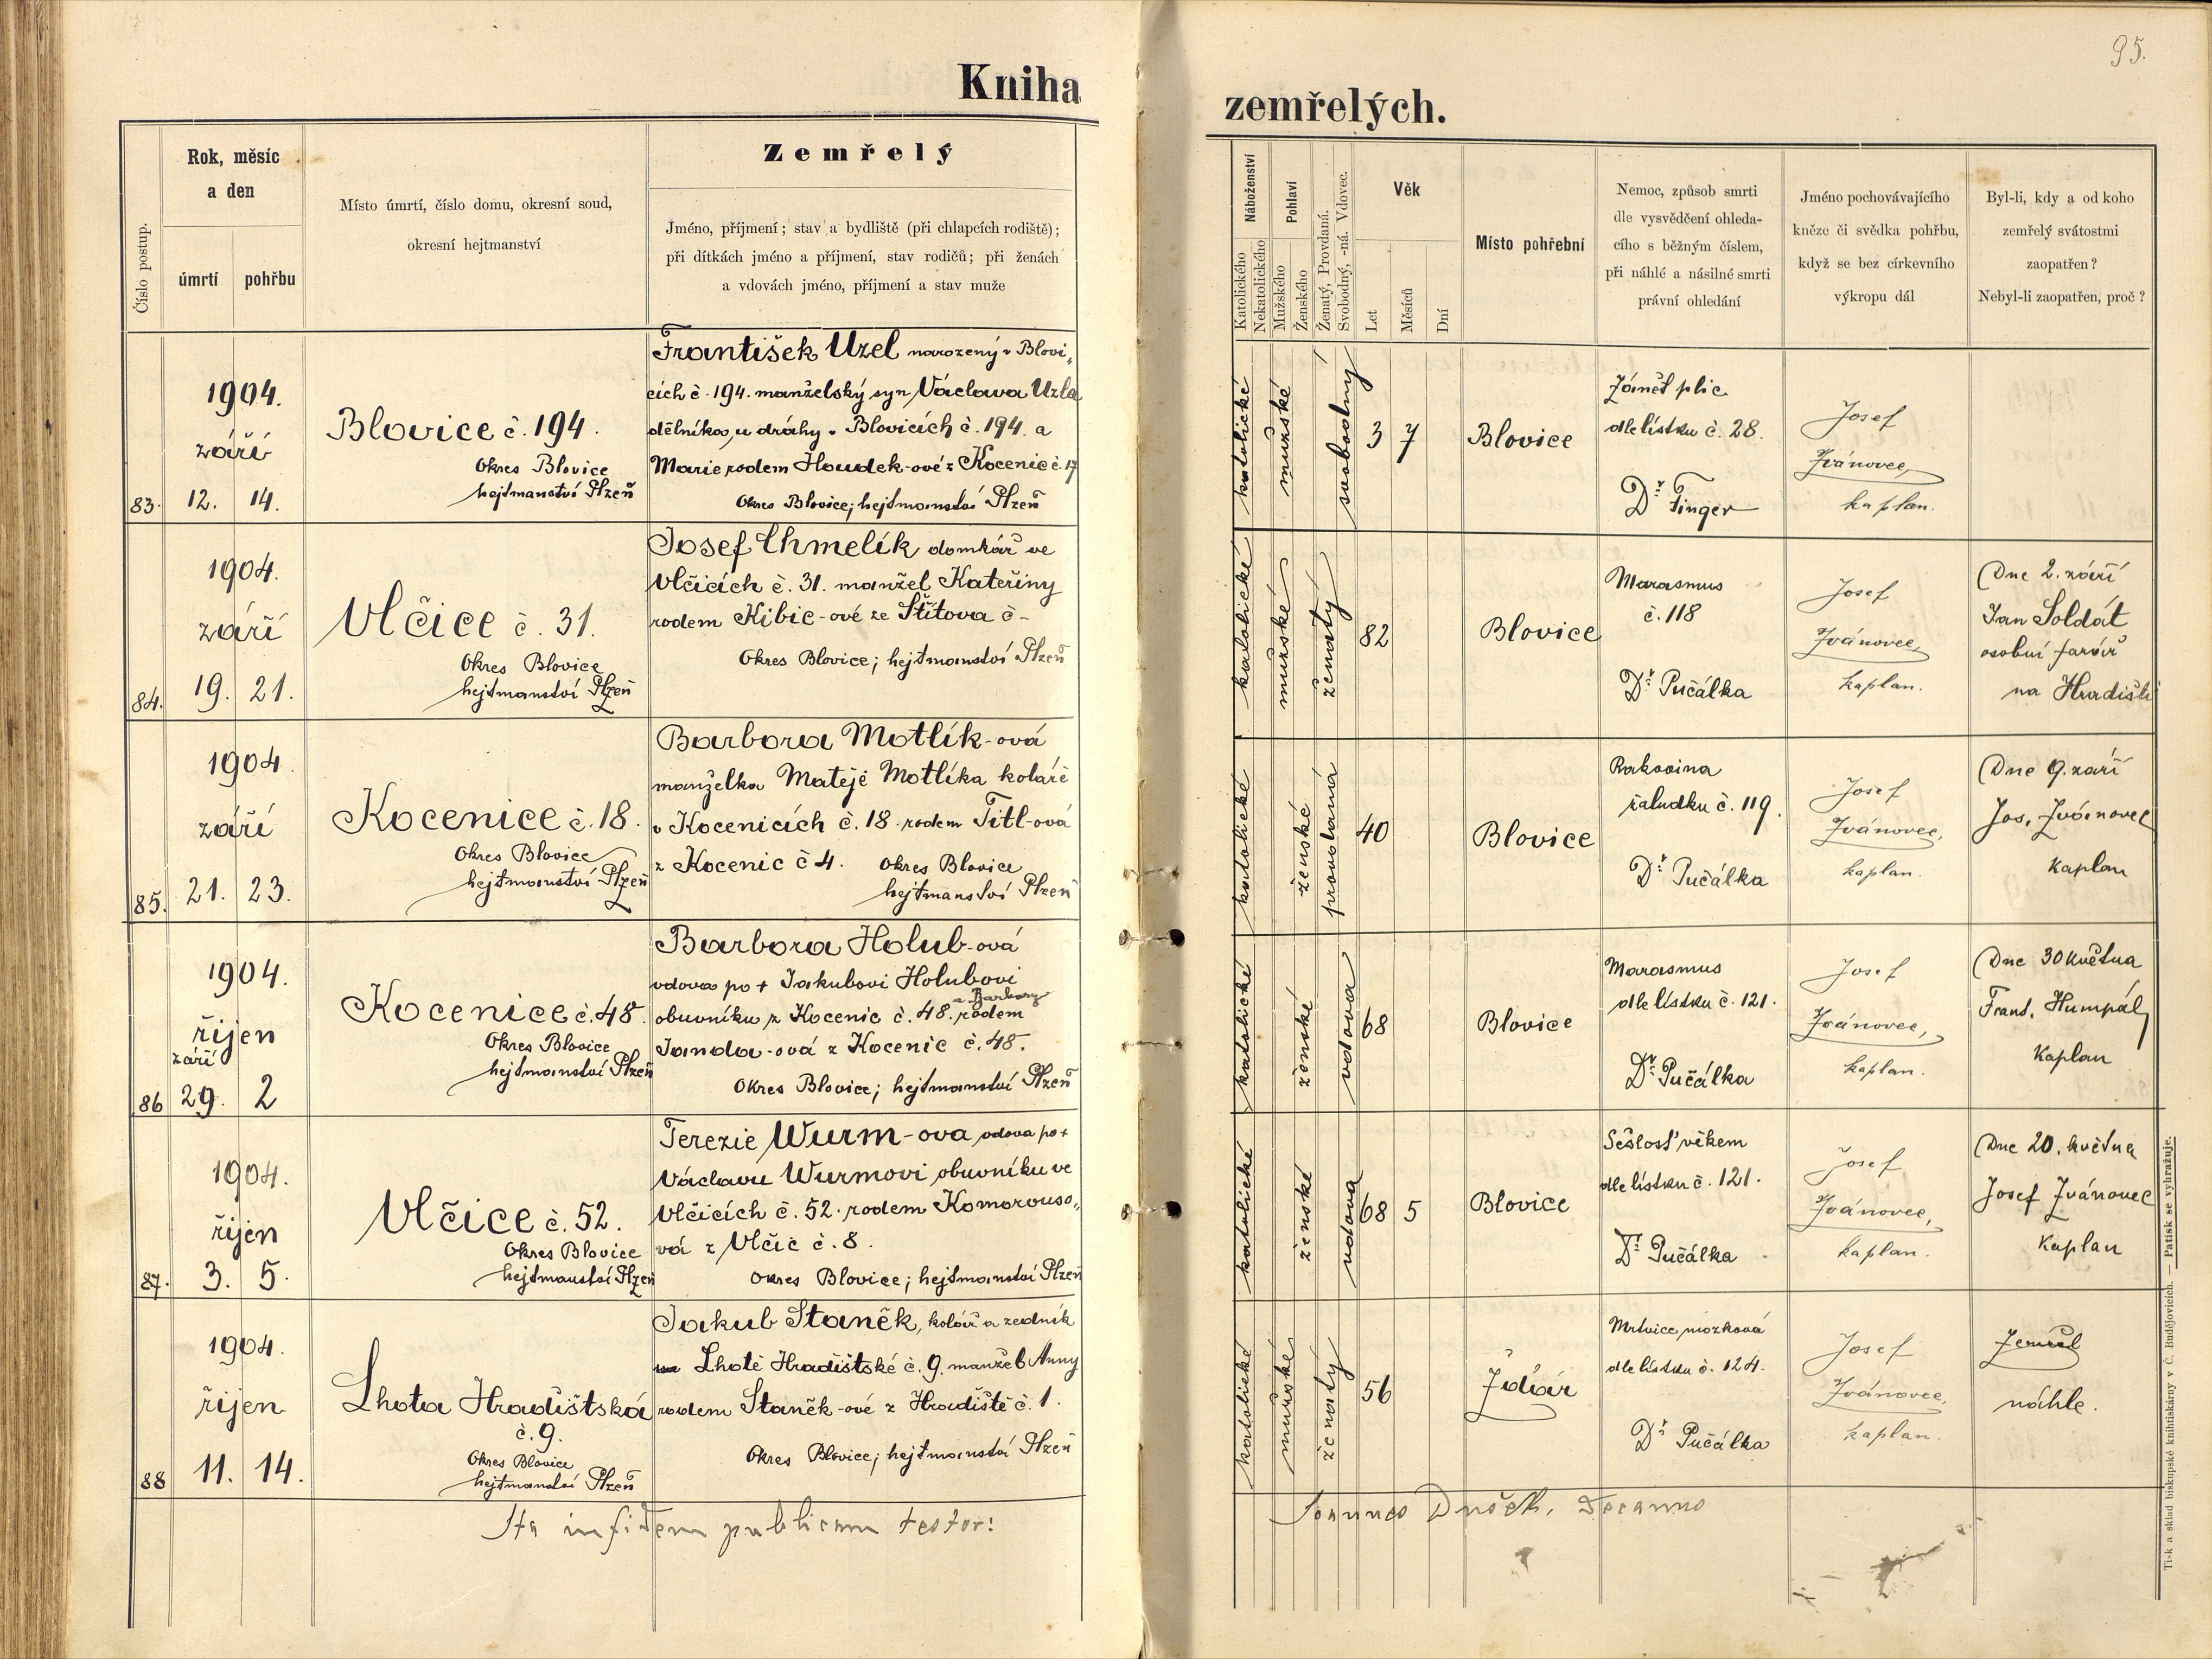 95.
Kniha zemřelých.
Číslo postup.
Rok, měsíc
a den
úmrtí
pohřbu
Místo úmrtí, číslo domu, okresní soud,
okresní hejtmanství
Zemřelý
Jméno, příjmení; stav a bydliště (při chlapcích rodiště);
při dítkách jméno a příjmení, stav rodičů; při ženách
a vdovách jméno, příjmení a stav muže
Náboženství
Katolického
Nekatolického
Pohlaví
Mužského
Ženského
Ženatý, Provdaná.
Svobodný, -ná. Vdovec.
Věk
Let
Měsíců
Dní
Místo pohřební
Nemoc, způsob smrti
dle vysvědčení ohleda-
cího s běžným číslem,
při náhlé a násilné smrti
právní ohledání
Jméno pochovávajícího
kněze či svědka pohřbu,
když se bez církevního
výkropu dál
Byl-li, kdy a od koho
zemřelý svátostmi
zaopatřen?
Nebyl-li zaopatřen, proč?
83.
1904.
září
12. 14.
Blovice č. 194.
Okres Blovice
hejtmanství Plzeň
František Uzel narozený v Blovi„
cích č. 194. manželský syn Václava Uzla
dělníka u dráhy v Blovicích č. 194. a
Marie rodem Houdek-ové z Kocenic č. 17
Okres Blovice; hejtmanství Plzeň
katolické
mužské
svobodný
3 7
Blovice
Zánět plic
dle lístku č. 28.
Dr Finger
Josef
Ivánovec,
kaplan.
84.
1904.
září
19. 21.
Vlčice č. 31.
Okres Blovice
hejtmanství Plzeň
Josef Chmelík domkář ve
Vlčicích č. 31. manžel Kateřiny
rodem Kibic-ové ze Štítova č -
Okres Blovice; hejtmanství Plzeň
katolické
mužské
ženatý
82
Blovice
Marasmus
č. 118
Dr Pučálka
Josef
Ivánovec,
kaplan.
Dne 2. září
Jan Soldát
osobní farář
na Hradišti
85.
1904.
září
21. 23.
Kocenice č. 18.
Okres Blovice
hejtmanství Plzeň
Barbora Motlík-ová
manželka Matěje Motlíka koláře
v Kocenicích č. 18 rodem Titl-ová
z Kocenic č 4. Okres Blovice
hejtmanství Plzeň
katolické
ženské
provdaná
40
Blovice
Rakovina
žaludku č. 119.
Dr Pučálka
Josef
Ivánovec,
kaplan.
Dne 9. září
Jos. Ivánovec
kaplan
86
1904.
říjen
září
29. 2
Kocenice č. 48
Okres Blovice
hejtmanství Plzeň
Barbora Holub-ová
vdova po + Jakubovi Holubovi
a Barbory
obuvníku z Kocenic č. 48. rodem
Janda-ová z Kocenic č. 48.
Okres Blovice; hejtmanství Plzeň
katolické
ženské
vdova
68
Blovice
Marasmus
dle lístku č. 121.
Dr Pučálka
Josef
Ivánovec,
kaplan.
Dne 30 května
Frant. Humpál
Kaplan
87.
1904.
říjen
3. 5.
Vlčice č. 52.
Okres Blovice
hejtmanství Plzeň
Terezie Wurm-ova vdova po +
Václavu Wurmovi obuvníku ve
Vlčicích č. 52. rodem Komorouso„
vá z Vlčic č. 8.
Okres Blovice; hejtmanství Plzeň
katolické
ženské
vdova
68 5
Blovice
Sešlosť věkem
dle lístku č. 121.
Dr Pučálka
Josef
Ivánovec,
kaplan.
Dne 20. května
Josef Ivánovec
Kaplan
88
1904.
říjen
11. 14.
Lhota Hradištská
č. 9.
Okres Blovice
hejtmanství Plzeň
Jakub Staněk, kolář a zedník
Lhotě Hradištské č. 9. manžel Anny
rodem Staněk-ové z Hradiště č. 1.
Okres Blovice; hejtmanství Plzeň
katolické
mužské
ženatý
56
Ždiár
Mrtvice mozková
dle lístku č. 124.
Dr Pučálka
Josef
Ivánovec,
kaplan.
Zemřel
náhle.
Ita in fidem publicam testor:
Joannes Dušek, Decanus
Tisk a sklad biskupské knihtiskárny v Č. Budějovicích. — Patisk se vyhražuje.